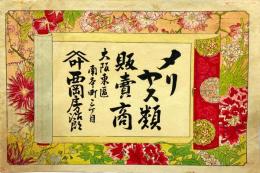 メリヤス類
販賣商
大阪東區
南本町二丁目
西岡房次郎